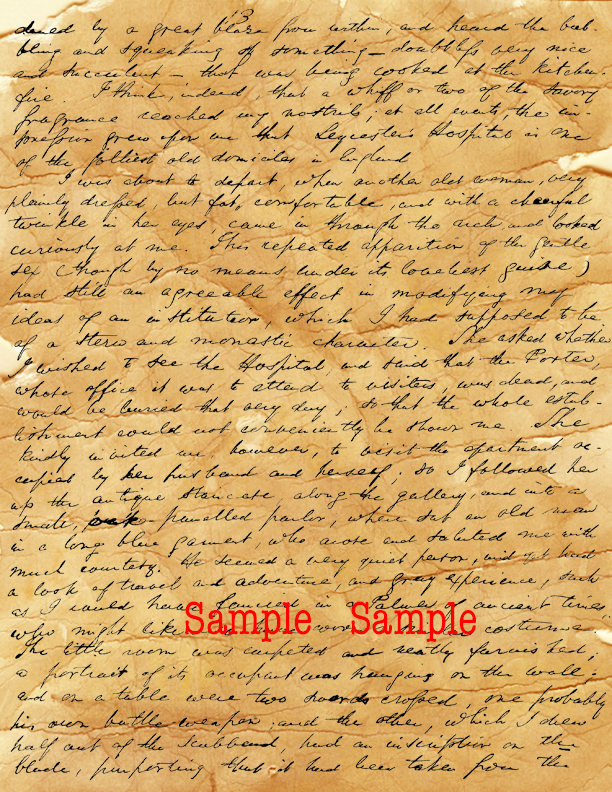 13
dened by a great blaze from within, and heard the bub-
bling and squeaking of something — doubtless very nice
and succulent — that was being cooked at the kitchen
fire. I think, indeed, that a whiff or two of the savory
fragrance reached my nostrils; at all events, the im-
pression grew upon me that Leycester's Hospital is one
of the jolliest old domiciles in England.
I was about to depart, when another old woman, very
plainly dressed, but fat, comfortable, and with a cheerful
twinkle in her eyes, came in through the arch, and looked
curiously at me. This repeated apparition of the gentle
sex (though by no means under its loveliest guise)
had still an agreeable effect in modifying my
ideas of an institution, which I had supposed to be
of a stern and monastic character. She asked whether
I wished to see the Hospital, and said that the Porter,
whose office it was to attend to visitors, was dead, and
would be buried that very day; so that the whole estab-
lishment could not conveniently be shown me. She
kindly invited me, however, to visit the apartment oc-
cupied by her husband and herself; so I followed her
up the antique staircase, along the gallery, and into a
small, oak-panelled parlor, where sat an old man
in a long blue garment, who arose and saluted me with
much courtesy. He seemed a very quiet person, and yet had
a look of travel and adventure, and gray experience, such
as I could have fancied in Palmer of ancient times,
who might like wore costume.
Sample Sample
The little room was carpeted and neatly furnished;
a portrait of its occupant was hanging on the wall;
and on a table were two swords crossed, one probably
his own battle weapon, and the other, which I drew
half out of the scabbard, had an inscription on the
blade, purporting that it had been taken from the